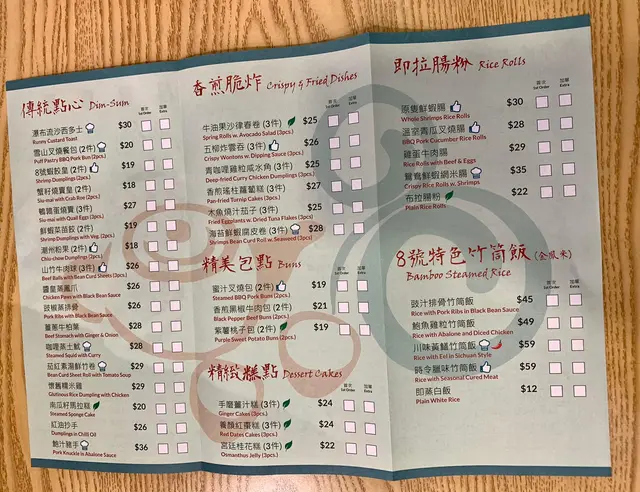 傳統點心 Dim-Sum
首次 1st Order
加單 Extra
瀑布流沙西多士 $30
Runny Custard Toast
雪山叉燒餐包 (2件) $20
Puff Pastry BBQ Pork Bun (2pcs.)
8號蝦餃皇 (2件) $19
Shrimp Dumplings (2pcs.)
蟹籽燒賣皇 (2件) $18
Siu-mai with Crab Roe (2pcs.)
鵪鶉蛋燒賣 (3件) $27
Siu-mai with Quail Egg (3pcs.)
鮮蝦菜苗餃 (2件) $19
Shrimp Dumplings with Veg. (2pcs.)
潮州粉果 (2件) $18
Chiu-chow Dumplings (2pcs.)
山竹牛肉球 (3件) $26
Beef Balls with Bean Curd Sheets (3pcs.)
醬皇蒸鳳爪 $26
Chicken Paws with Black Bean Sauce
豉椒蒸排骨 $26
Pork Ribs with Black Bean Sauce
薑蔥牛柏葉 $28
Beef Stomach with Ginger & Onion
咖喱蒸土魷 $28
Steamed Squid with Curry
茄紅素湯鮮竹卷 $29
Bean Curd Sheet Roll with Tomato Soup
懷舊糯米雞 $29
Glutinous Rice Dumpling with Chicken
南瓜籽馬拉糕 $20
Steamed Sponge Cake
紅油抄手 $26
Dumplings in Chili Oil
鮑汁豬手 $36
Pork Knuckle in Abalone Sauce
香煎脆炸 Crispy & Fried Dishes
首次 1st Order
加單 Extra
牛油果沙律春卷 (3件) $25
Spring Rolls w. Avocado Salad (3pcs.)
五柳炸雲吞 (3件) $26
Crispy Wontons w. Dipping Sauce (3pcs.)
青咖喱雞粒咸水角 (3件) $25
Deep-fried Curry Chicken Dumplings (3pcs.)
香煎瑤柱蘿蔔糕 (3件) $27
Pan-fried Turnip Cakes (3pcs.)
木魚燒汁茄子 (3件) $25
Fried Eggplants w. Dried Tuna Flakes (3pcs.)
海苔鮮蝦腐皮卷 (3件) $28
Shrimps Bean Curd Roll w. Seaweed (3pcs.)
精美包點 Buns
首次 1st Order
加單 Extra
蜜汁叉燒包 (2件) $19
Steamed BBQ Pork Buns (2pcs.)
香煎黑椒牛肉包 (2件) $21
Black Pepper Beef Buns (2pcs.)
紫薯桃子包 (2件) $19
Purple Sweet Potato Buns (2pcs.)
精緻糕點 Dessert Cakes
首次 1st Order
加單 Extra
手磨薑汁糕 (3件) $24
Ginger Cakes (3pcs.)
養顏紅棗糕 (3件) $24
Red Dates Cakes (3pcs.)
宮廷桂花糕 (3件) $22
Osmanthus Jelly (3pcs.)
即拉腸粉 Rice Rolls
首次 1st Order
加單 Extra
原隻鮮蝦腸 $30
Whole Shrimps Rice Rolls
溫室青瓜叉燒腸 $28
BBQ Pork Cucumber Rice Rolls
雞蛋牛肉腸 $29
Rice Rolls with Beef & Eggs
鴛鴦鮮蝦網米腸 $35
Crispy Rice Rolls w. Shrimps
布拉腸粉 $22
Plain Rice Rolls
8號特色竹筒飯 (金鳳米)
Bamboo Steamed Rice
首次 1st Order
加單 Extra
豉汁排骨竹筒飯 $45
Rice with Pork Ribs in Black Bean Sauce
鮑魚雞粒竹筒飯 $49
Rice with Abalone and Diced Chicken
川味黃鱔竹筒飯 $59
Rice with Eel in Sichuan Style
時令臘味竹筒飯 $59
Rice with Seasonal Cured Meat
即蒸白飯 $12
Plain White Rice